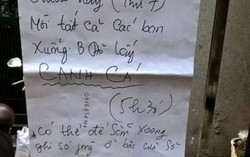 (Thứ 7)
Mời tất cả các bạn
Xuống B lấy
CANH CÁ
(5h30)
Có thể để sẵn xoong
ghi số ở bậc cửa sổ